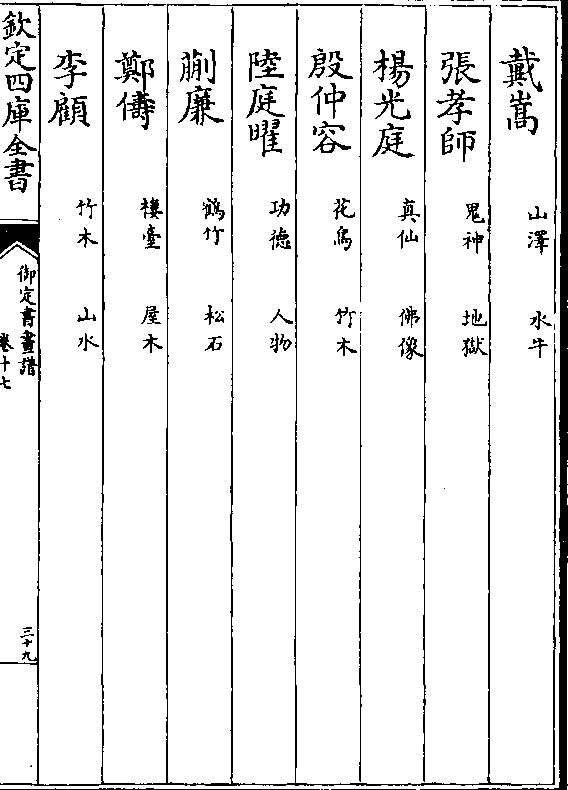 戴嵩 山澤 水牛
張孝師 鬼神 地獄
楊光庭 真仙 佛像
殷仲容 花鳥 竹木
陸庭曜 功德 人物
蒯廉 鶴竹 松石
鄭儔 樓臺 屋木
李顧 竹木 山水
欽定四庫全書
御定書畫譜
卷十七
三十九